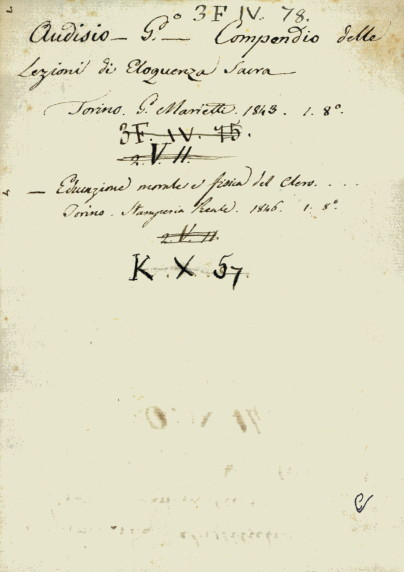 3F IV. 78.
Audisio — G.º — Compendio delle
Lezioni di Eloquenza Sacra
Torino. G. Marietti. 1843. 1. 8º.
3F. IV. 75.
2. V. 11.
— Educazione morale e fisica del Clero. . . .
Torino. Stamperia Reale. 1846. 1. 8º.
2. V. 11.
K. X 57